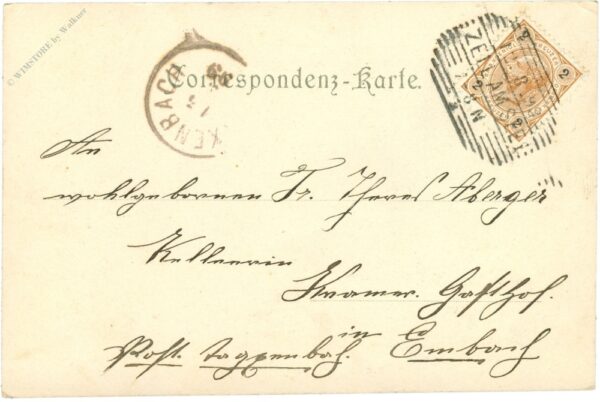 © WIMSTORE by Walkner
Correspondenz-Karte.
ZELL AM SEE
2
2
2
2
An
wohlgebornen Fr. Theres Aberger
Kellnerin
Kramer. Gasthof.
in
Post. taxenbach. Embach